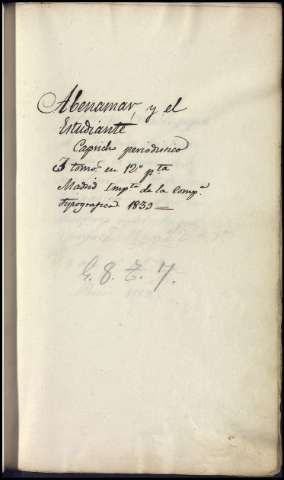 Abenamar, y el
Estudiante
Capricho periodistico
3 tomos en 12º pta
Madrid Impta de la Compª
tipografica 1839 —
G. 8. Z. 7.